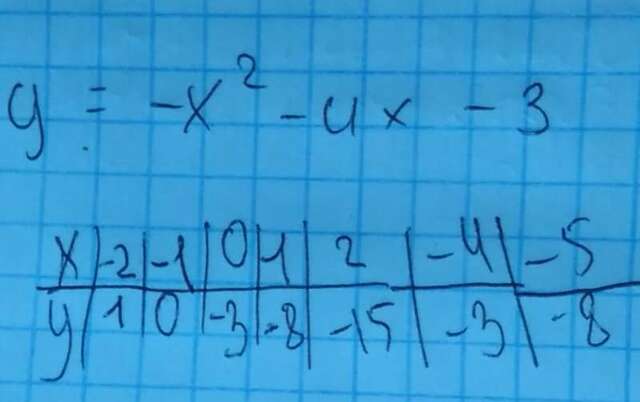 y = -x² - 4x - 3
x | -2 | -1 | 0 | 1 | 2 | -4 | -5
y | 1 | 0 | -3 | -8 | -15 | -3 | -8